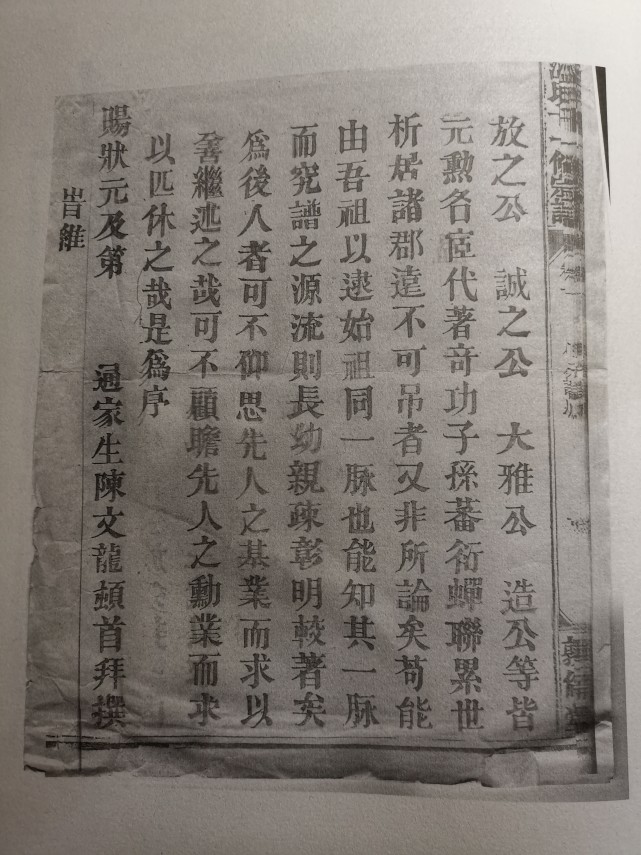 放之公　誠之公　大雅公　造公等皆
元勲名宦代著竒功子孫蕃衍蟬聯累世
析居諸郡遠不可吊者又非所論矣苟能
由吾祖以逮始祖同一脉也能知其一脉
而究譜之源流則長幼親疎彰明較著矣
爲後人者可不仰思先人之基業而求以
善繼述之哉可不顧瞻先人之勳業而求
以匹休之哉是爲序
賜狀元及第　　通家生陳文龍頓首拜撰
旹維